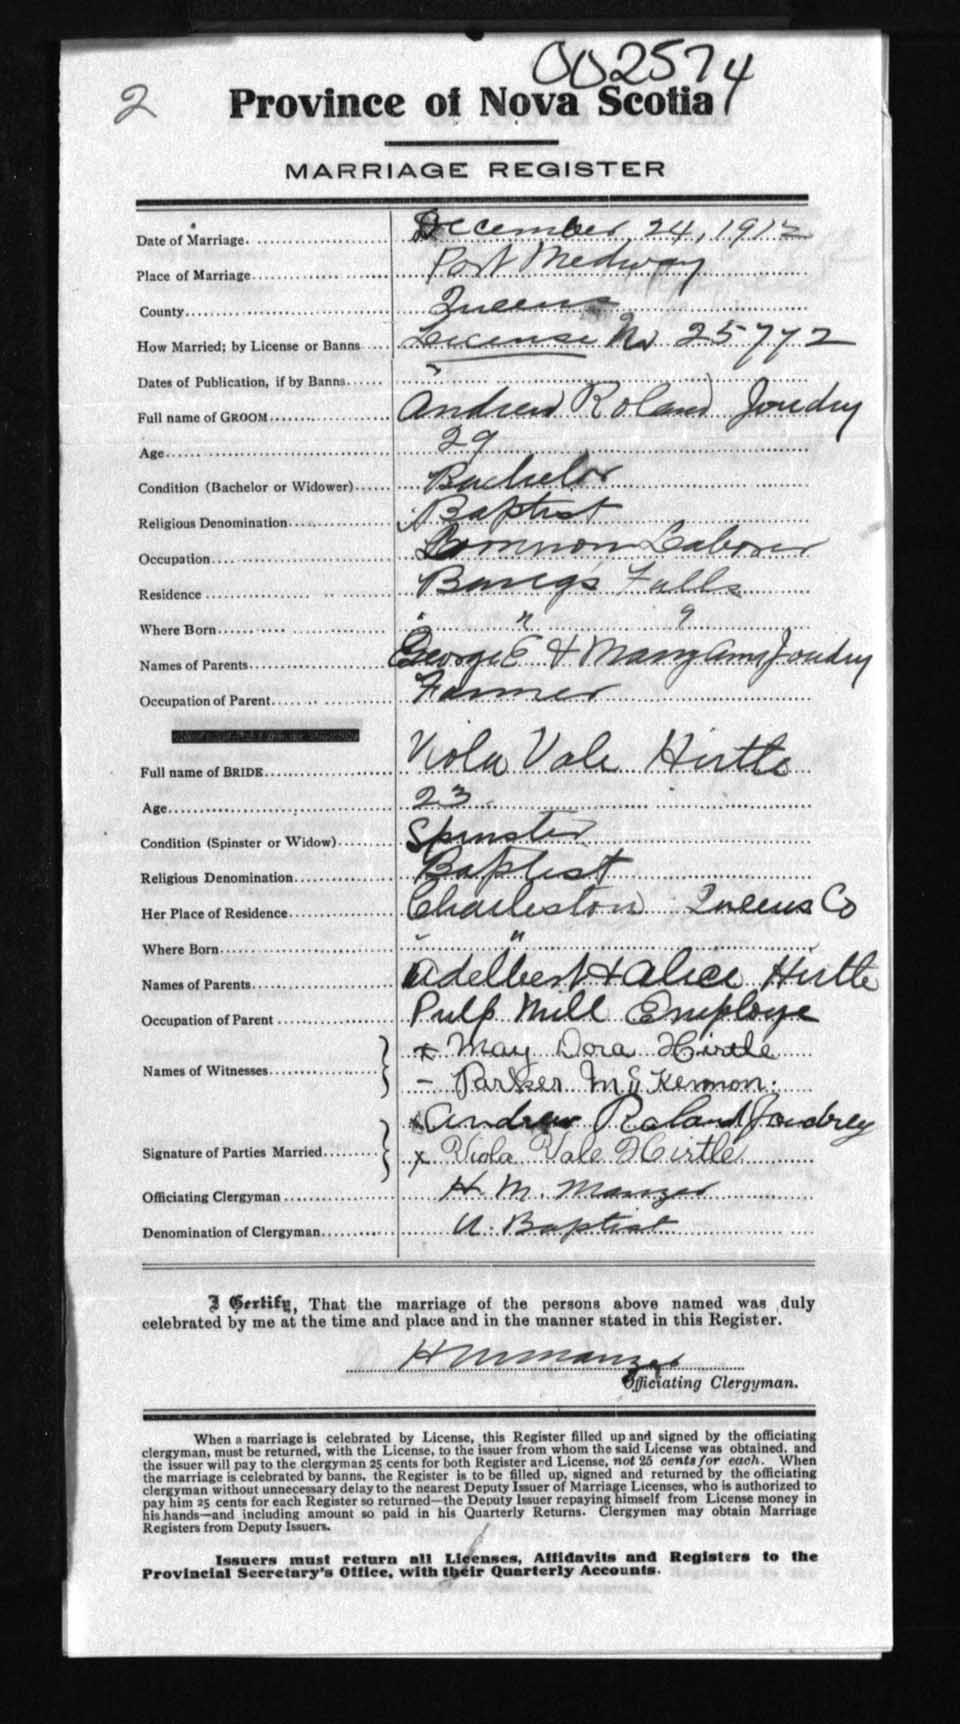 002574
2
Province of Nova Scotia
MARRIAGE REGISTER
Date of Marriage. December 24, 1912
Place of Marriage Port Medway
County Queens
How Married; by License or Banns License No 25772
Dates of Publication, if by Banns "
Full name of GROOM Andrew Roland Joudry
Age 29
Condition (Bachelor or Widower) Bachelor
Religious Denomination Baptist
Occupation Common Laborer
Residence Bang's Falls
Where Born " " "
Names of Parents George E & Mary Ann Joudry
Occupation of Parent Farmer
Full name of BRIDE Viola Vale Hirtle
Age 23
Condition (Spinster or Widow) Spinster
Religious Denomination Baptist
Her Place of Residence Charleston Queens Co
Where Born " "
Names of Parents Adelbert & Alice Hirtle
Occupation of Parent Pulp Mill Employe
Names of Witnesses x May Dora Hirtle
- Parker Mc Kennon.
x Andrew Roland Joudrey
Signature of Parties Married x Viola Vale Hirtle
Officiating Clergyman H. M. Manzer
Denomination of Clergyman U. Baptist
I Certify, That the marriage of the persons above named was duly
celebrated by me at the time and place and in the manner stated in this Register.
H M Manzer
Officiating Clergyman.
When a marriage is celebrated by License, this Register filled up and signed by the officiating
clergyman, must be returned, with the License, to the issuer from whom the said License was obtained, and
the issuer will pay to the clergyman 25 cents for both Register and License, not 25 cents for each. When
the marriage is celebrated by banns, the Register is to be filled up, signed and returned by the officiating
clergyman without unnecessary delay to the nearest Deputy Issuer of Marriage Licenses, who is authorized to
pay him 25 cents for each Register so returned—the Deputy Issuer repaying himself from License money in
his hands—and including amount so paid in his Quarterly Returns. Clergymen may obtain Marriage
Registers from Deputy Issuers.
Issuers must return all Licenses, Affidavits and Registers to the
Provincial Secretary's Office, with their Quarterly Accounts.